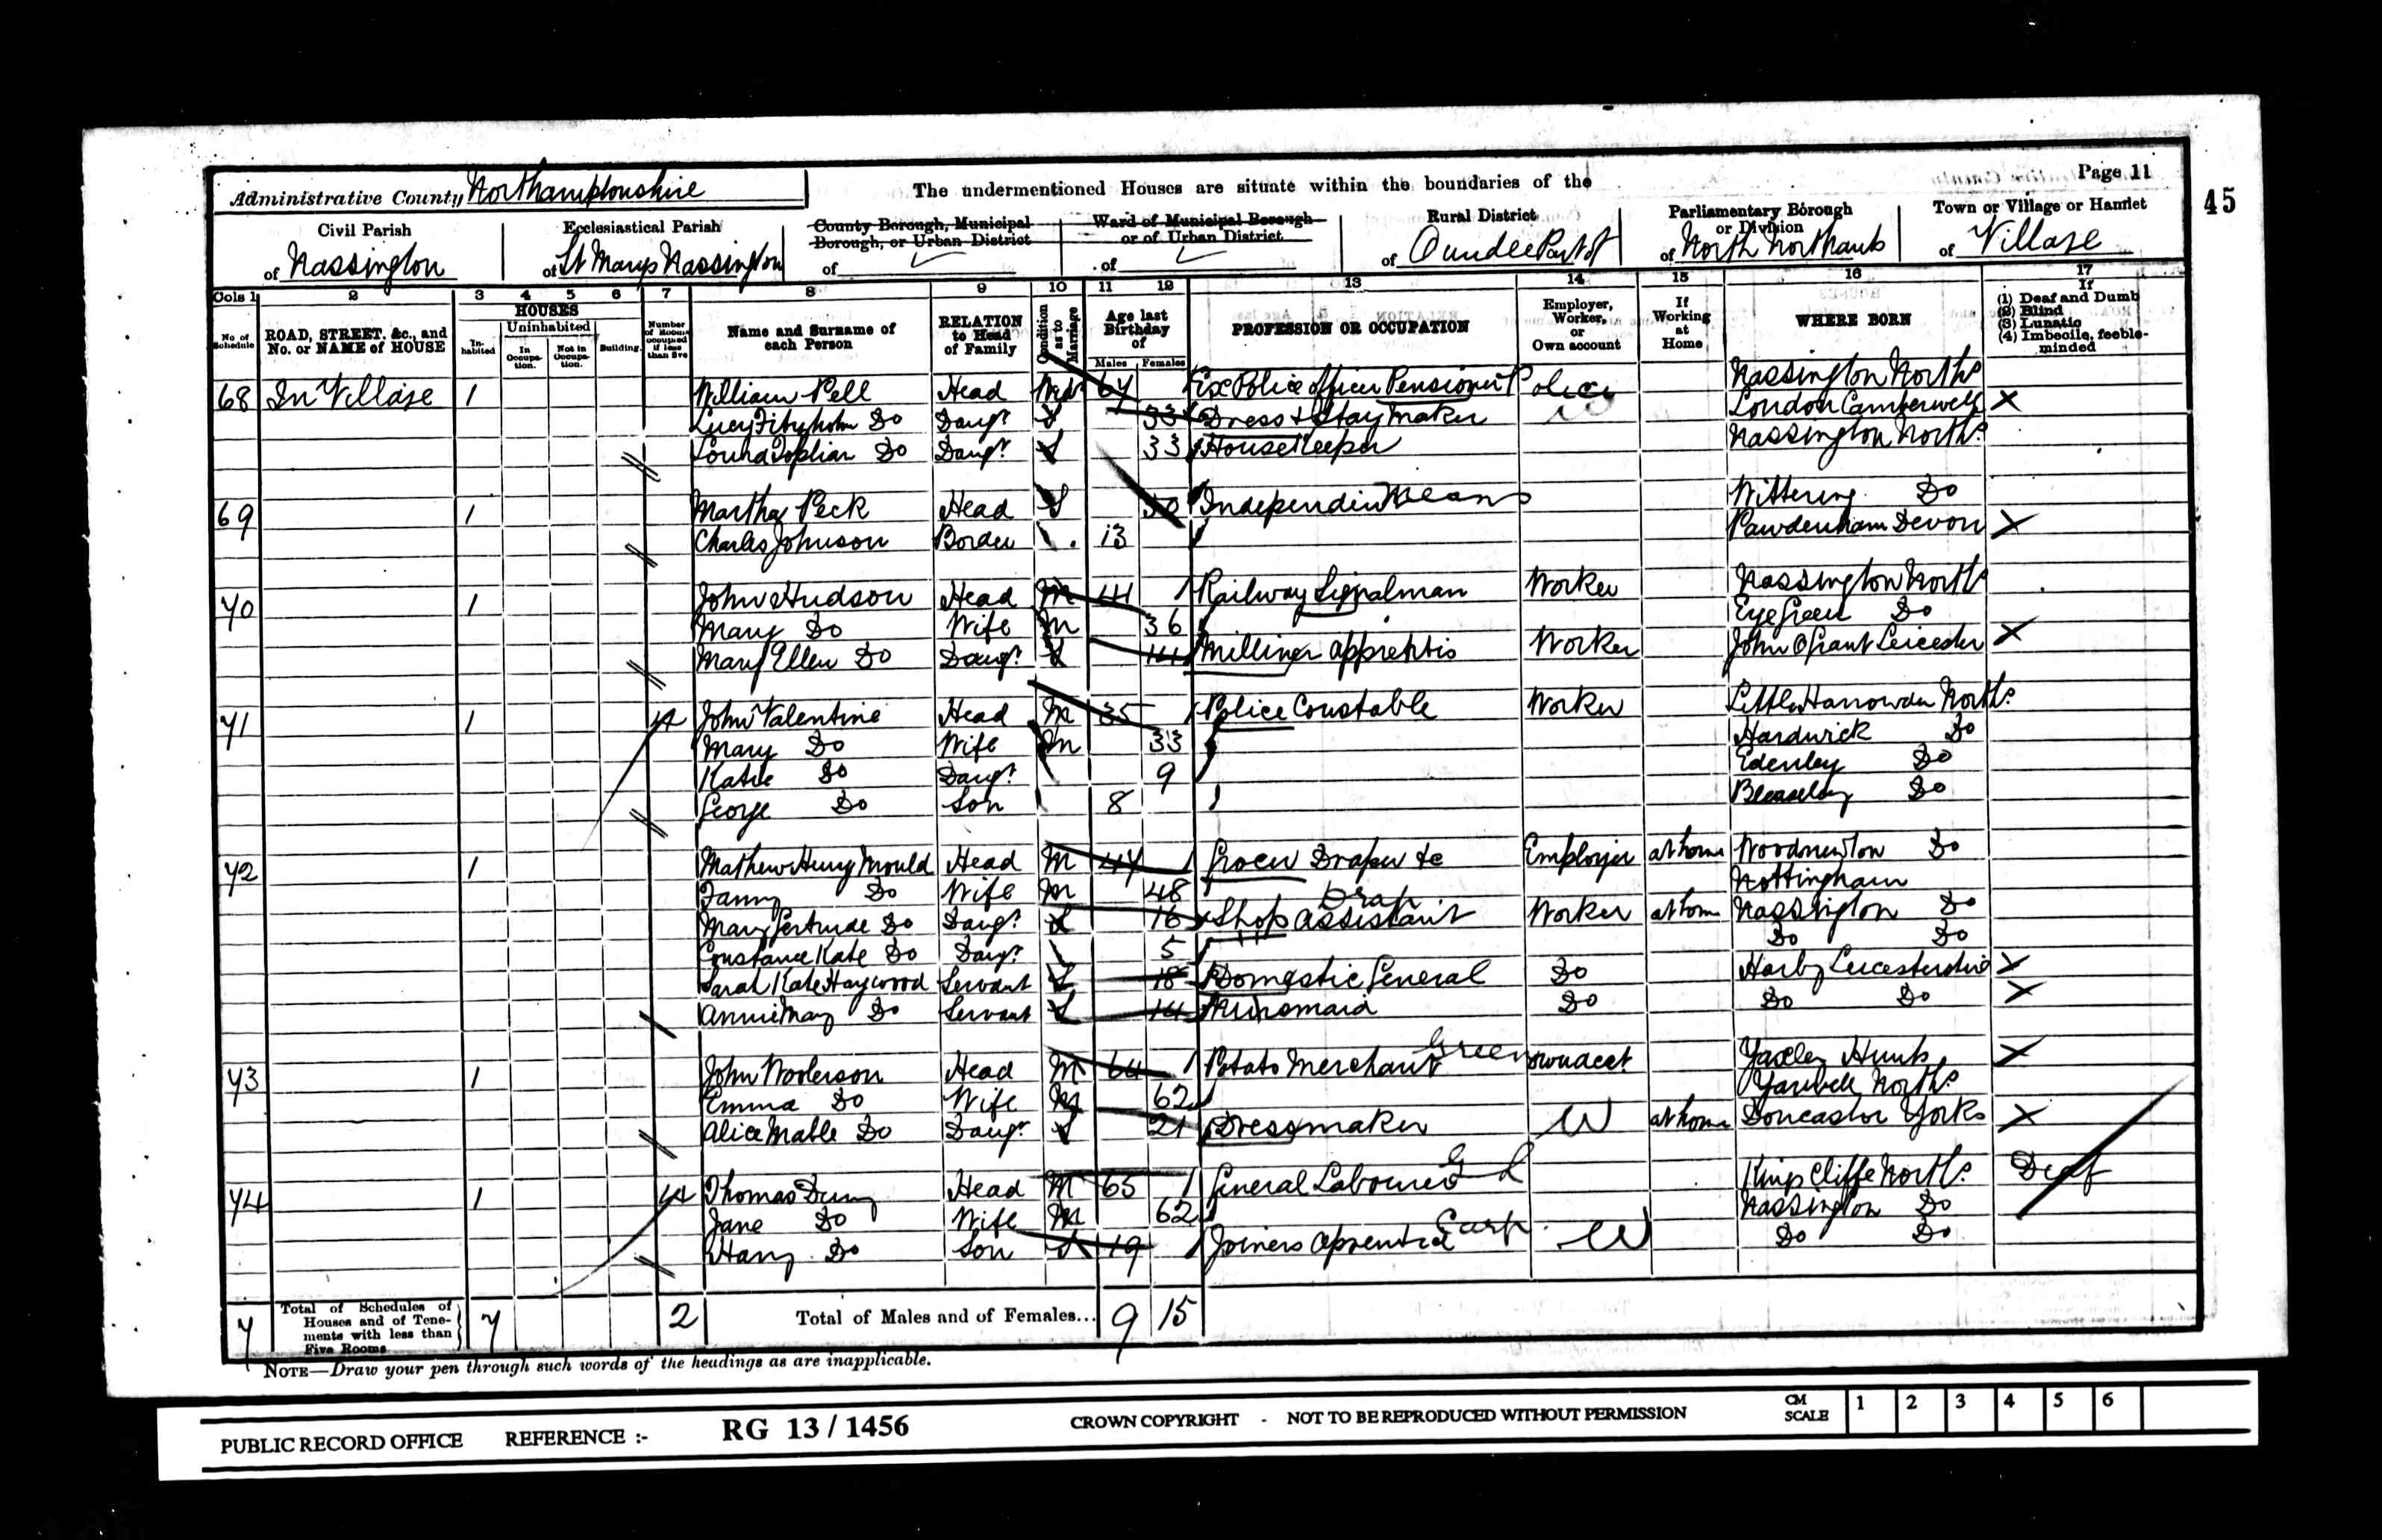 Page 11
45
Administrative County Northamptonshire
The undermentioned Houses are situate within the boundaries of the
Civil Parish
of Nassington
Ecclesiastical Parish
of St Marys Nassington
County Borough, Municipal Borough, or Urban District
of
Ward of Municipal Borough or of Urban District
of
Rural District
of Oundle Part of
Parliamentary Borough or Division
of North Northants
Town or Village or Hamlet
of Village
Cols 1 2 3 4 5 6 7 8 9 10 11 12 13 14 15 16 17
No of Schedule
ROAD, STREET, &c., and No. or NAME of HOUSE
HOUSES
Inhabited
Uninhabited
In Occupation.
Not in Occupation.
Building.
Number of Rooms occupied if less than five
Name and Surname of each Person
RELATION to Head of Family
Condition as to Marriage
Age last Birthday of
Males Females
PROFESSION OR OCCUPATION
Employer, Worker, or Own account
If Working at Home
WHERE BORN
If
(1) Deaf and Dumb
(2) Blind
(3) Lunatic
(4) Imbecile, feeble-minded
68 In Village 1 William Pell Head 67 Ex Police officer Pensioner Police Nassington Norths
Lucy Do Daugr S 33 Dress & Stay Maker London Camberwell X
Do Daugr S 33 HouseKeeper Nassington Norths
69 1 Martha Peck Head S 50 Means Wittering Do
Charles Johnson Border 13 Devon X
70 1 John Hudson Head M 41 Railway Signalman Worker Nassington Norths
Mary Do Wife M 36 Eye Green Do
Mary Ellen Do Daugr S 14 Milliner apprentis Worker John O Gaunt Leicester X
71 1 4 John Valentine Head M 35 Police Constable Worker Little Harrowden Norths
Mary Do Wife M 33 Hardwick Do
Katie Do Daugr 9 Do
George Do Son 8 Do
72 1 Mathew Henry Mould Head M 47 Grocer Draper &c Employer at home Woodnewton Do
Fanny Do Wife M 48 Nottingham
Drap
Mary Gertrude Do Daugr S 16 Shop assistant Worker at home Nassington Do
Constance Kate Do Daugr 5 Do Do
Sarah Kate Haywood Servant S 18 Domestic General Do Harby Leicestershire X
Annie May Do Servant S 14 Nursmaid Do Do Do X
73 1 John Head M 64 Potato Merchant Green ownacct Yaxley Hunts X
Emma Do Wife M 62 Norths
Alice Mable Do Daugr S 21 Dressmaker W at home Doncaster Yorks X
74 1 4 Thomas Head M 65 General Labourer G L Kings Cliffe Norths Deaf
Jane Do Wife M 62 Nassington Do
Harry Do Son S 19 Joiners aprentice Carp W Do Do
7 Total of Schedules of Houses and of Tenements with less than Five Rooms 7 2 Total of Males and of Females... 9 15
NOTE—Draw your pen through such words of the headings as are inapplicable.
PUBLIC RECORD OFFICE REFERENCE :- RG 13 / 1456 CROWN COPYRIGHT - NOT TO BE REPRODUCED WITHOUT PERMISSION CM SCALE 1 2 3 4 5 6